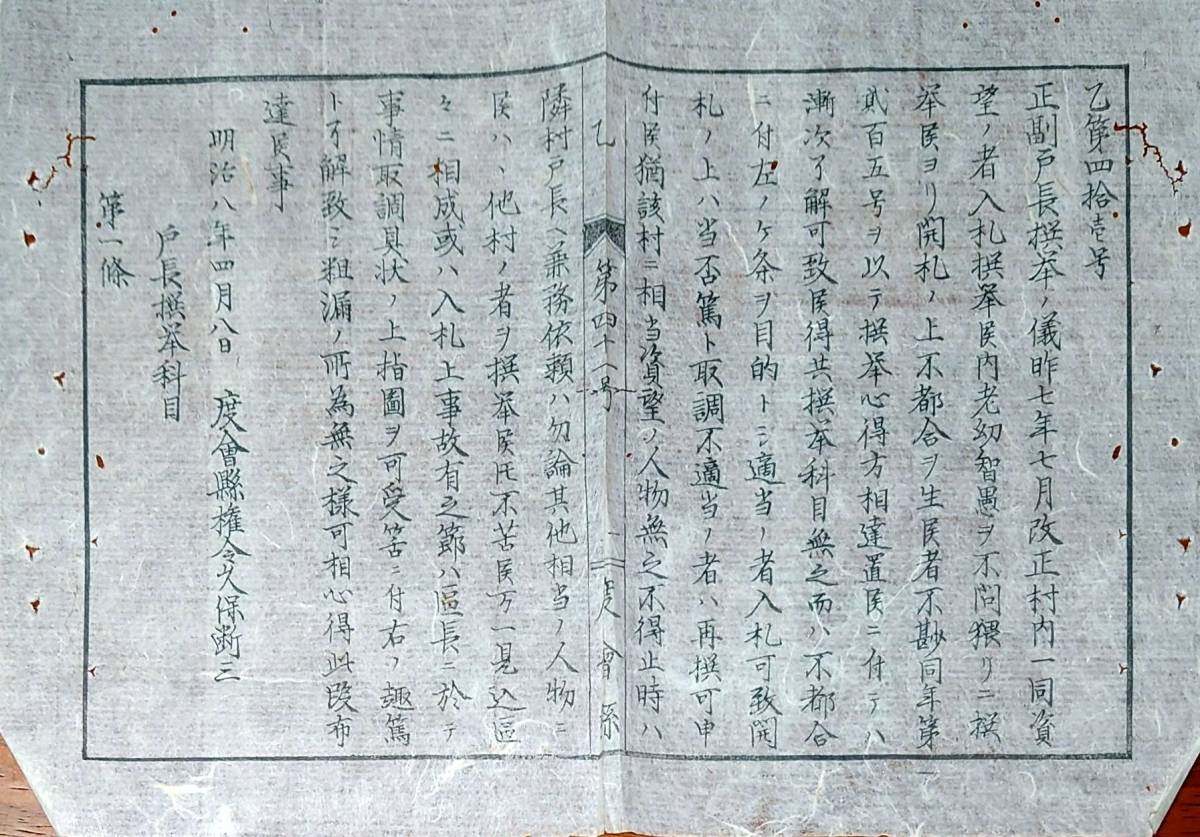 乙第四拾壱号
正副戸長撰挙ノ儀昨七年七月改正村内一同資
望ノ者入札撰挙候内老幼智愚ヲ不問猥リニ撰
挙候ヨリ開札ノ上不都合ヲ生候者不尠同年第
貳百五号ヲ以テ撰挙心得方相達置候ニ付テハ
漸次了解可致候得共撰挙科目無之而ハ不都合
ニ付左ノケ条ヲ目的トシ適当ノ者入札可致開
札ノ上ハ当否篤ト取調不適当ノ者ハ再撰可申
付候猶該村ニ相当資望ノ人物無之不得止時ハ
乙 第四十一号 度會縣
隣村戸長ヘ兼務依頼ハ勿論其他相当ノ人物ニ
候ハヽ他村ノ者ヲ撰挙候圧不苦候万一見込區
々ニ相成或ハ入札上事故有之節ハ區長ニ於テ
事情取調具状ノ上指圖ヲ可受筈ニ付右ノ趣篤
ト了解致シ粗漏ノ所為無之様可相心得此段布
達候事
明治八年四月八日 度會縣權令久保断三
戸長撰挙科目
第一條